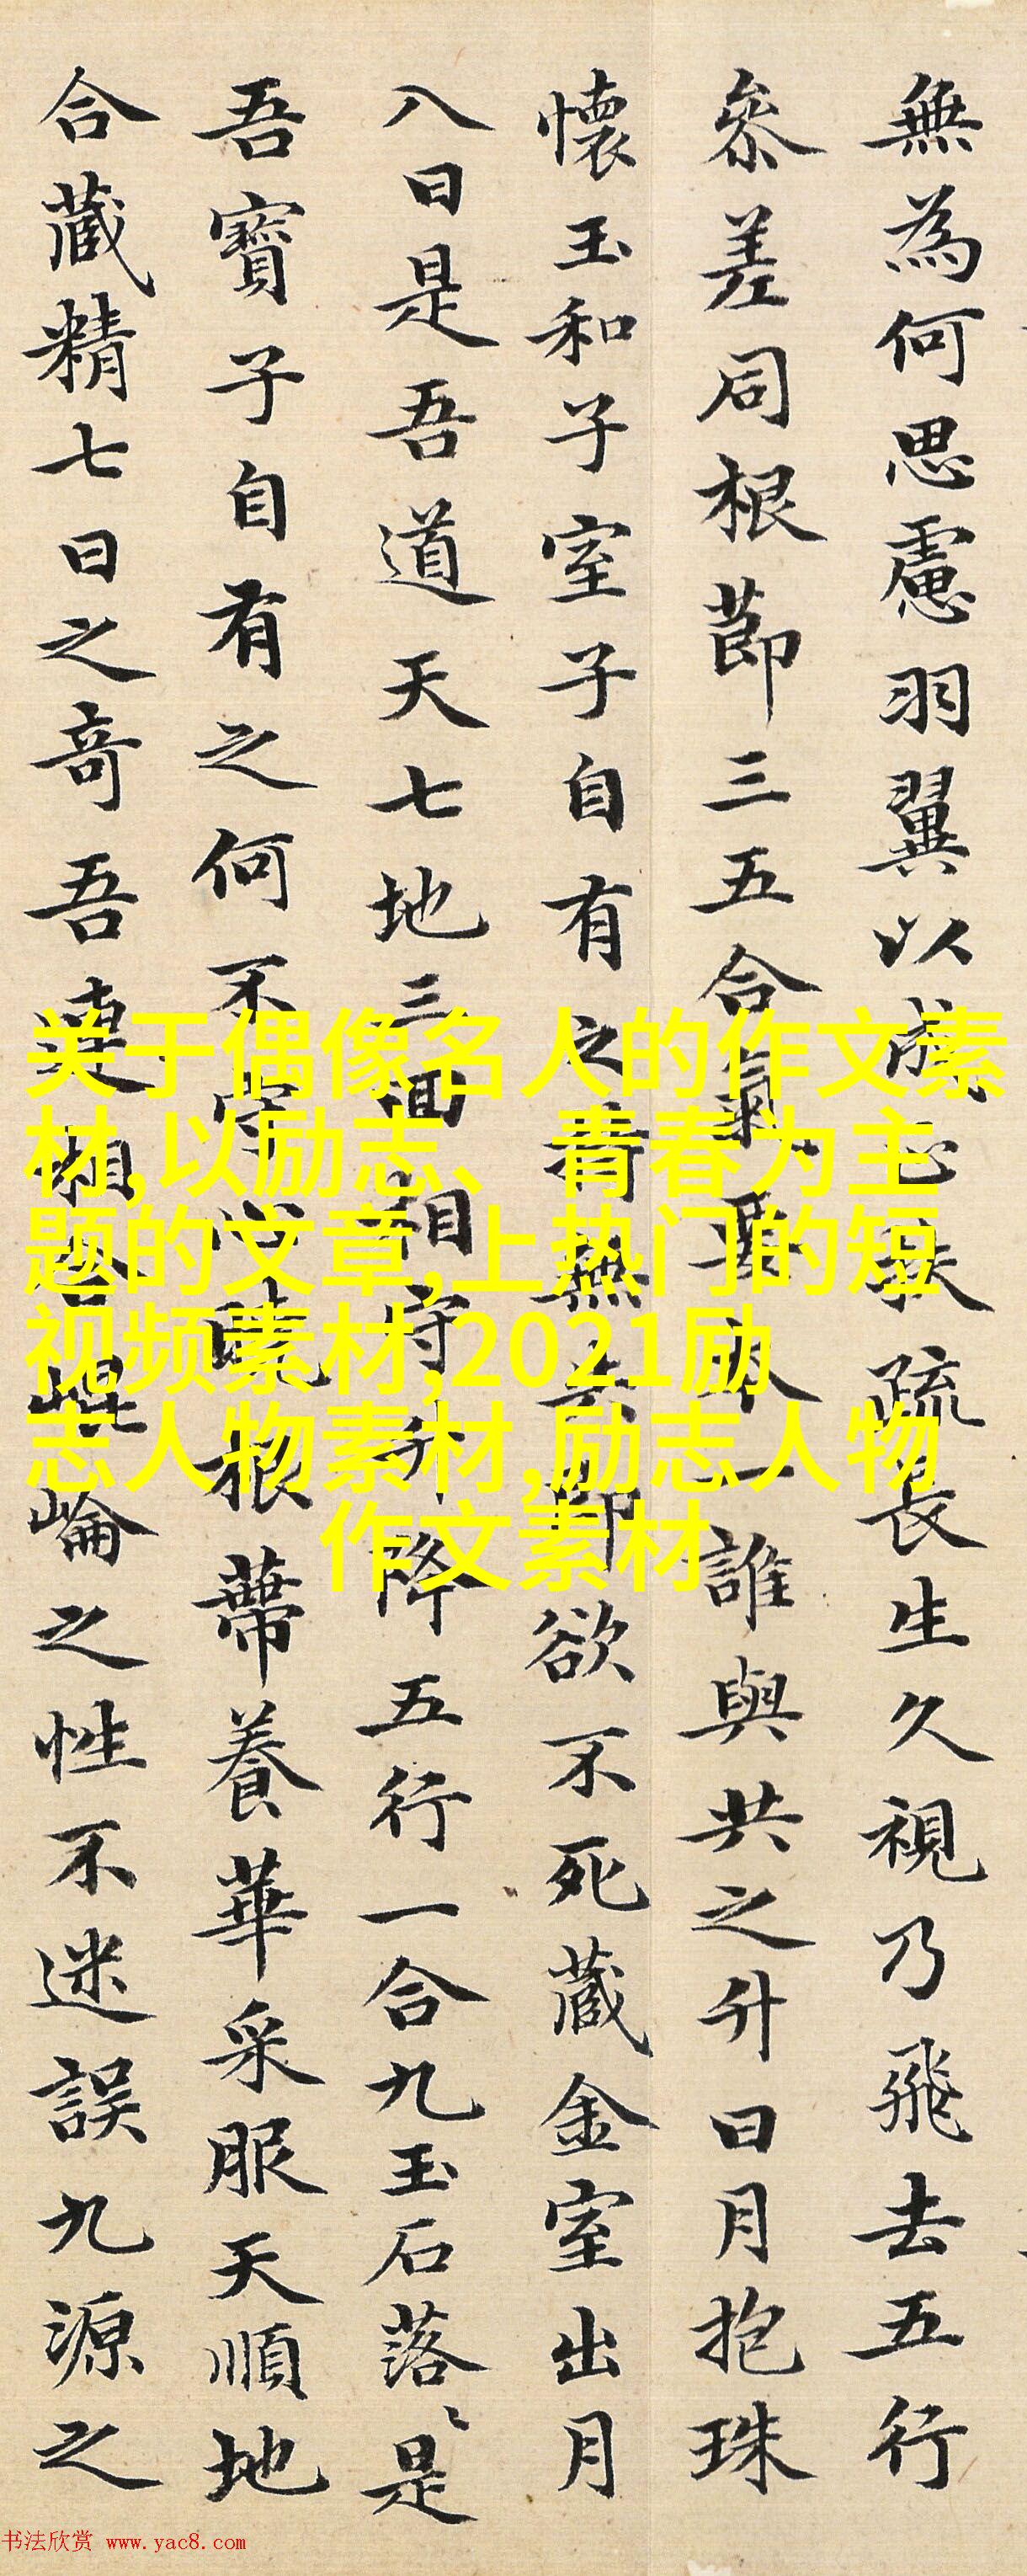 無為何思慮羽翼以成正扶疏長生久視乃飛去五行
叅差同根莭三五合氣要本一誰與共之升日月抱珠
懷玉和子室子自有之持無失即欲不死藏金室出月
八日是吾道天七地三回相守升降五行一合九玉石落〻是
吾寶子自有之何不守心曉根蔕養華采服天順地
合藏精七日之奇吾連相合崐崘之性不迷誤九源之
关于偶像名人的作文素
材,以励志、青春为主
题的文章,上热门的短
视频素材,2021励
志人物素材,励志人物
作文素材
书法欣赏 www.yac8.com